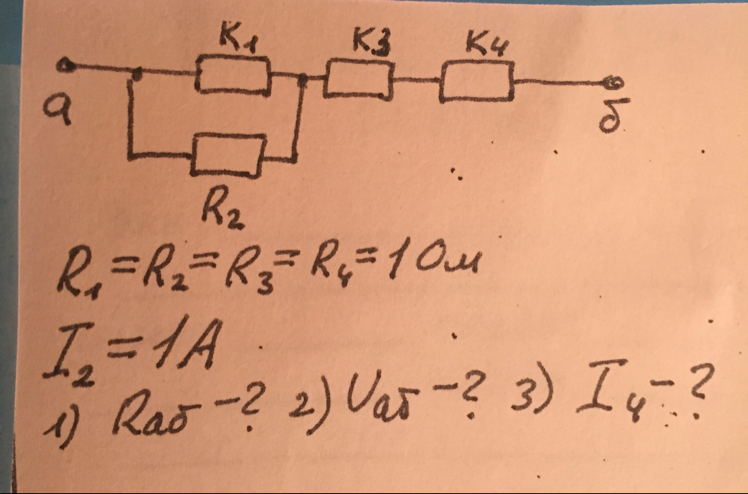 K1 K3 K4
а б
R2
R1=R2=R3=R4=1 Ом
I2=1А
1) Rаб-? 2) Uаб-? 3) I4-?